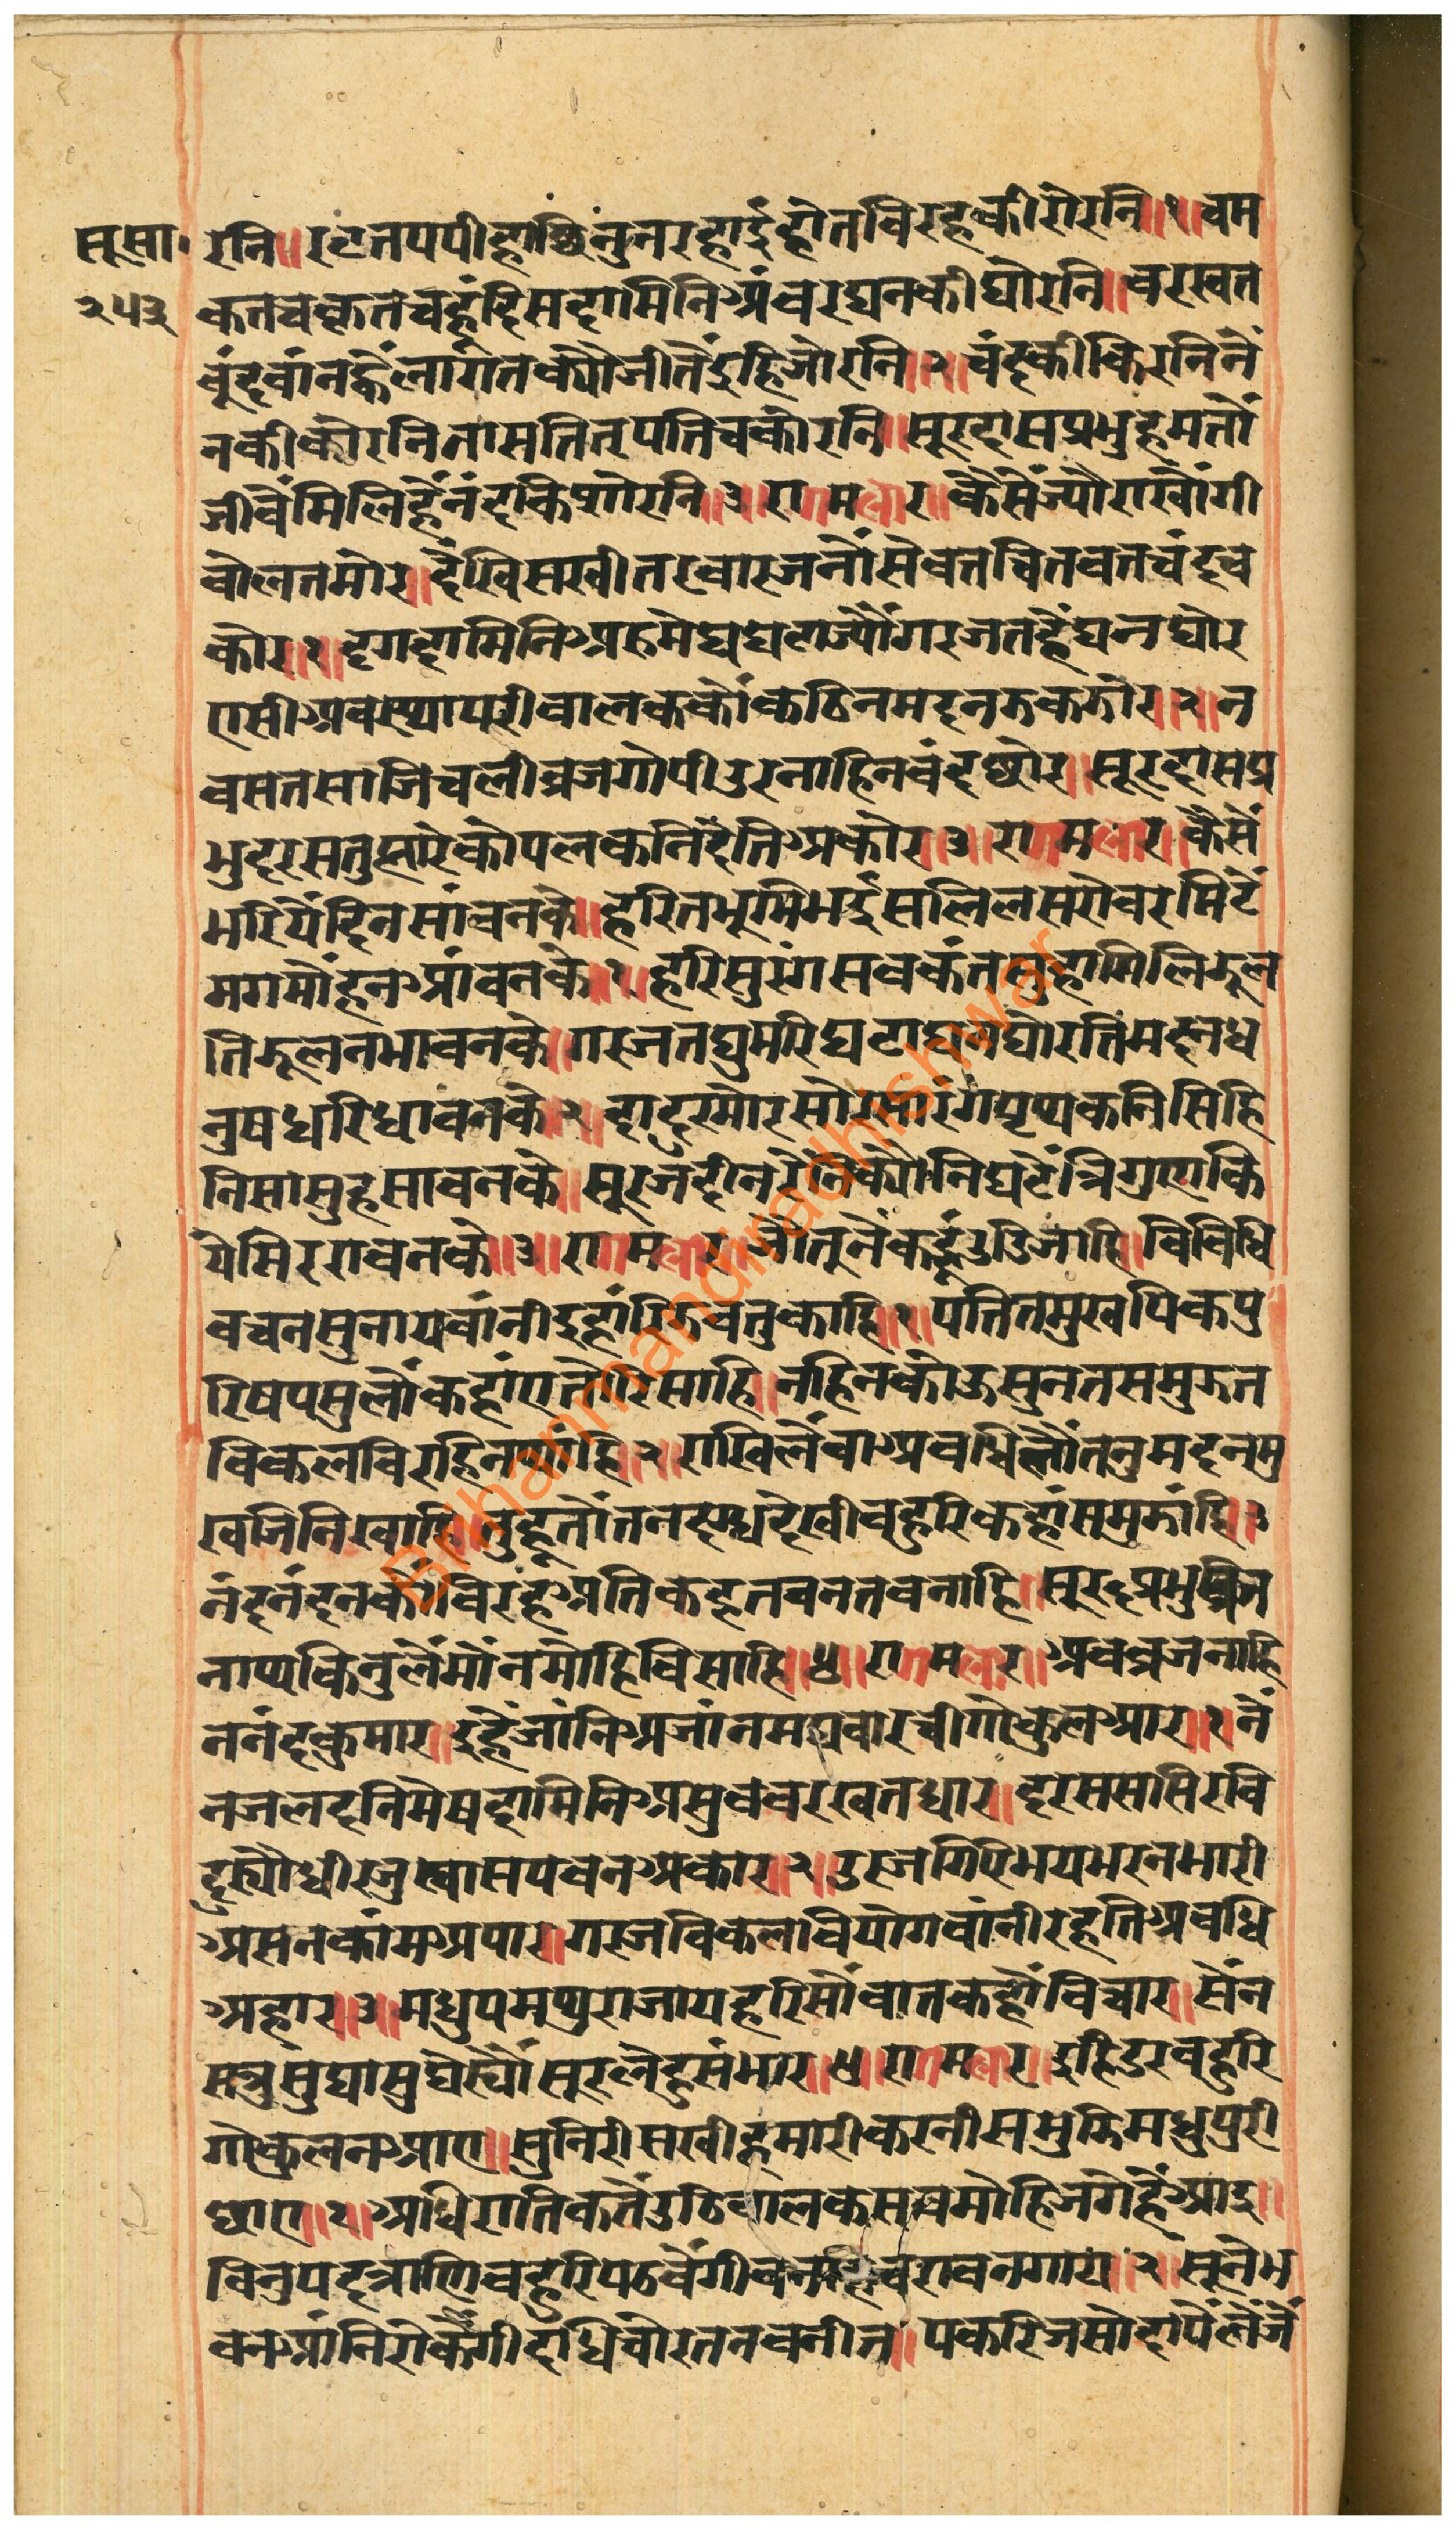 सू सा॰
२५३
रनि॥ रटत पपीहा छिनु न रहाई होत विरह की रोरनि॥१॥ चम
कत चकृत चहूं दिस दामिनि अंबर घन की घोरनि॥ वरखत
बूंद वांन ह्वै लागत क्यौ जीतै इहि जोरनि॥२॥ चंद की किरनि नै
न की कोरनि तास तित्रपत्ति चकोरनि॥ सूरदास प्रभु हम तौं
जीवै मिलि हैं नंद किशोरनि॥३॥ राग मलार॥ कैसैं ज्यौ राखौंगी
वोलत मोर॥ देखि सखी तरवार जनौं सेवत चितवत चंद च
कोर॥१॥ दृग दामिनि अरु मेघ घटा ज्यौं गरजत हैं घन घोर
एसी अवस्था परी वालक कों कठिन मदन झकझोर॥२॥ न
वसत साजि चली व्रज गोपी उर नाहिन वंद छोर॥ सूरदास प्र
भु दरस तुह्मारे को पलक नि देति अकोर॥३॥ राग मलार॥ कैसैं
भरियें दिन सांवन के॥ हरित भूमि भई सलिल सरोवर मिटे
मग मोंहन आंवन के॥१॥ हरि सुरंग सव कंत सुहा मिलि झूल
ति झूलन भावन के॥ गरजत घुमरि घटा घन घोरति मदन ध
नुष धरि धावन के॥२॥ दादुर मोर सोर सारंग पृथक निसि हि
निसा सुह सावन के॥ सूरज दीन रैनि क्यों निघटे त्रिगुण कि
ये सिर रावन के॥३॥ राग मलार॥ जौ तू नैंक हूं उडि जाहि॥ विविधि
वचन सुनाय वांनी इहां रिझवतु काहि॥१॥ पतित मुख पिक पु
रिष पसु लौं कहां ए तौ रिसाहि॥ नहिन कोऊ सुनत समुझत
विकल विरहिन थाहि॥२॥ राखि लैं वा अवधि लौं तनु मदन मु
ख जिनि खाहि॥ तुहू तौं तन दग्ध देखी वहुरि कहां समुझांहि॥३॥
नंद नंदन कौ विरह अति कहत वनत वनाहि॥ सूर प्रभु व्रज
नाथ किनु लैं मौंन मोहि विसाहि॥४॥ राग मलार॥ अव व्रज नाहि
न नंद कुमार॥ इहैं जांनि अजांन मघवा रची गोकुल आर॥१॥ नैं
न जलद निमेष दामिनि अस्रुव वरखत धार॥ दरस ससि रवि
दुर्यौ धीरजु स्वास पवन अकार॥२॥ उरज गिरि भय भरन भारी
असन कांम अपार॥ गरज विकल वियोग वांनी रहति अवधि
अहार॥३॥ मधुप मथुरा जाय हरि सौं वात कहौं विचार॥ सैंन
सत्रु सु घा सु घेर्यौं सूर लेहु संभार॥४॥ राग मलार॥ इहि डर वहुरि
गोकुल न आए॥ सुनिरी सखी हमारी करनी समुझि मधुपुरी
छाए॥१॥ अधिराति क तैं उठि वालक सव मोहि जगे हैं आइ॥
विनु पदत्राण वहुरि पठवेंगी वनहि चरावन गाय॥२॥ सूने भ
वन आंनि रोकेंगी दधि चोरत नवनीत॥ पकरि जसोदा पैं लै जैं